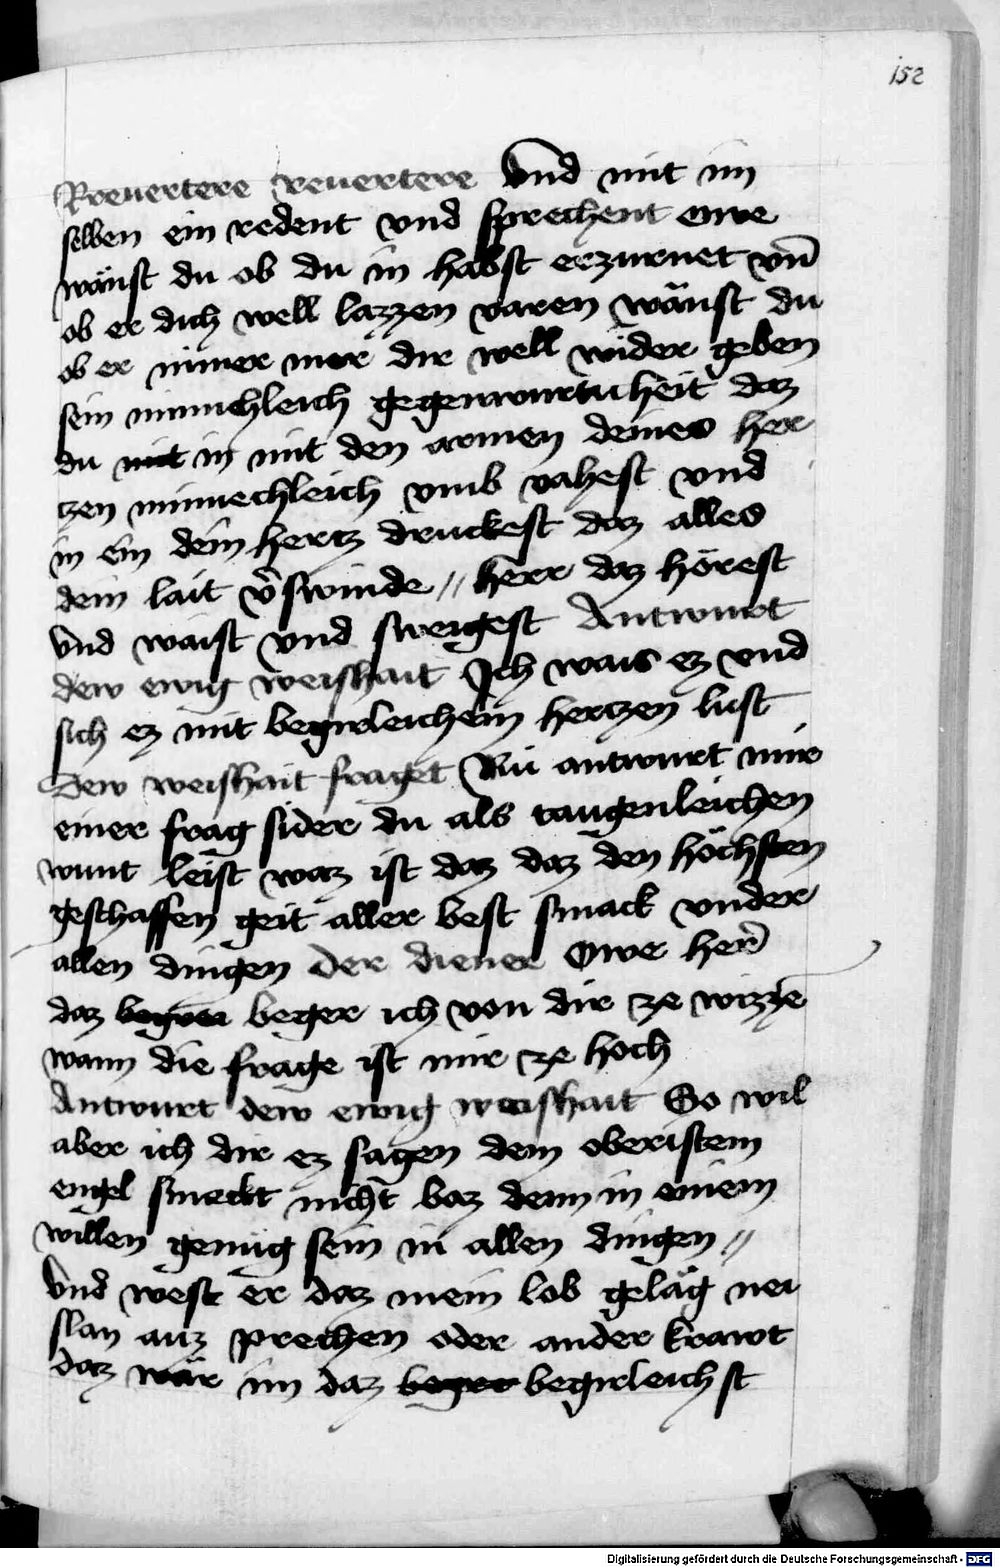 152
Rreuertere reuertere Vnd mit im
selben ein redent vnd sprechent owe
wänst du ob du in habst erzurnet vn̄
ob er dich well lazzen varen wänst du
ob er nimer mer dir well wider geben
sein minnchleich gegenwurtikheit daz
du mit in mit den armen deines her
tzen minnechleich vmb vahest vnd
in ein dein hertz druckest daz alles
dein lait v̄swinde // herr daz hörest
vnd waist vnd sweigest Antwurt
dew ewig weishait Ich wais ez vnd
sich ez mit begirleichem hertzen lust
Dew weishait fraget Nu antwurt mir
einer frag sider du als taugenleichen
wunt leist waz ist daz daz den höchsten
geschaffen geit aller best smack vnder
allen dingen Der diener Owe herr̄
daz beger ich von dir ze wizze
wann die frage ist mir ze hoch
Antwurt dew ewig weishait So wil
aber ich dir ez sagen dem oberistem
engel smeckt nicht baz denn in einem
willen genug sein in allen dingen //
Vnd west er daz mein lob geläg nei
slan auz prechen oder ander krawt
daz wär im daz begirleichst
Digitalisierung gefördert durch die Deutsche Forschungsgemeinschaft - DFG